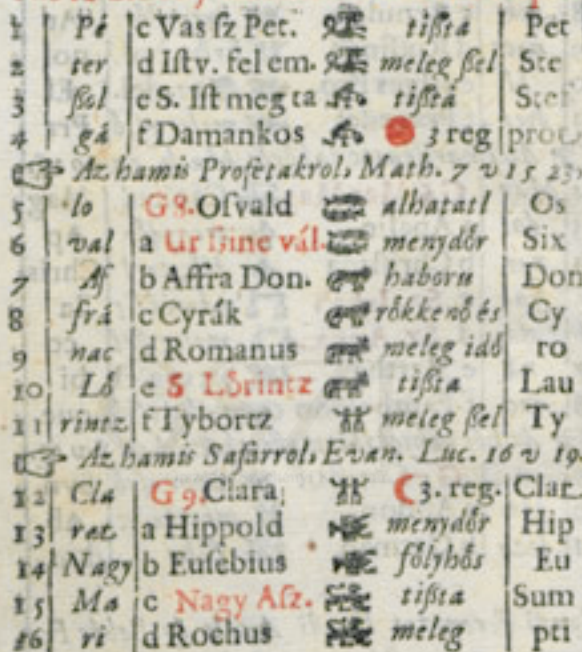 1 Pé c Vas ſz Pet. tißta Pet
2 ter d Iſtv. fel em. meleg ßel Ste
3 ßol e S. Iſt meg ta tißtá Stef
4 gá f Damankos 3 reg prot
Az hamis Profetakrol, Math. 7 v 15 23
5 lo G 8. Oſvald alhatatl Os
6 val a Ur ſzine vál. menydőr Six
7 Af b Affra Don. haboru Don
8 frá c Cyrák rőkkenő és Cy
9 nac d Romanus meleg idő ro
10 Lő e S Lőrintz tißta Lau
11 rintz f Tybortz meleg ßel Ty
Az hamis Safárrol, Evan. Luc. 16 v 19.
12 Cla G 9. Clara 3. reg. Clar
13 rat a Hippold menydőr Hip
14 Nagy b Euſebius főlyhős Eu
15 Ma c Nagy Aſz. tißta Sum
16 ri d Rochus meleg pti